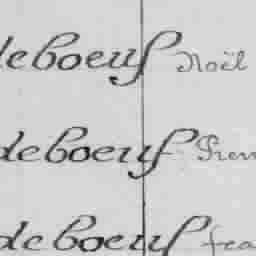 deboeuf Noël
deboeuf Pierr
deboeuf fra